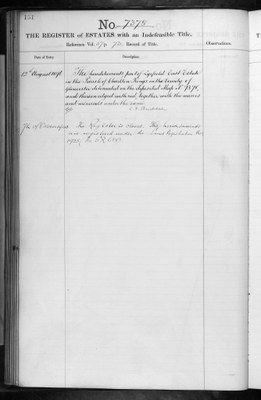 151
No 7275
THE REGISTER of ESTATES with an Indefeasible Title.
Reference Vol. Record of Title.
Observations.
Date of Entry
Description
17th August 1871
The hereditaments part of Lypiatt East Estate
in the Parish of Charlton Kings in the County of
Gloucester delineated on the deposited Map No 7275
and thereon edged with red together with the mines
and minerals under the same
The Register is closed. The hereditaments
are registered under the Land Registration Act
1925,